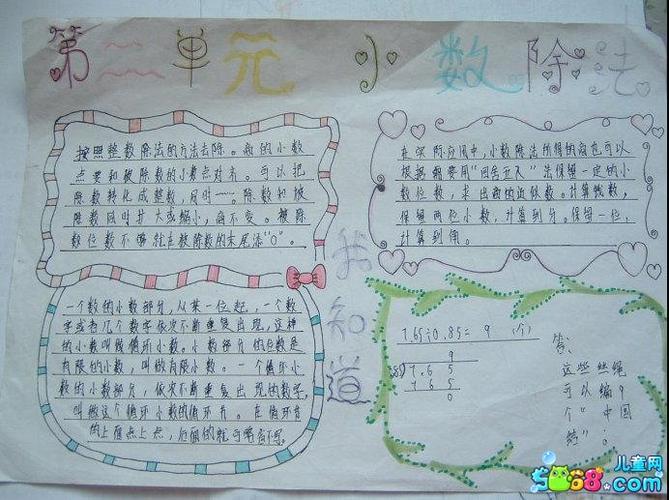 第二单元 小数除法
按照整数除法的方法去除。商的小数
点要和被除数的小数点对齐。可以把
除数转化成整数,同时一。除数和被
除数同时扩大或缩小,商不变。被除
数位数不够就在被除数的末尾添“0”。
在实际应用中,小数除法所得的商也可以
根据需要用“四舍五入”法保留一定的小
数位数,求出商的近似数。计算钱数,
保留两位小数,计算到分。保留一位,
计算到角。
我知道
一个数的小数部分,从某一位起,一个数
字或者几个数字依次不断重复出现,这样
的小数叫做循环小数。小数部分的位数是
有限的小数,叫做有限小数。一个循环小
数的小数部分,依次不断重复出现的数字,
叫做这个循环小数的循环节。在循环节
的上面点上点,后面的就可省略不写。
7.65÷0.85= 9 (个)
9
7.6 5
7 6 5
0
答:
这些丝绳
可以编9
个“中国
结”。
5068儿童网
.com